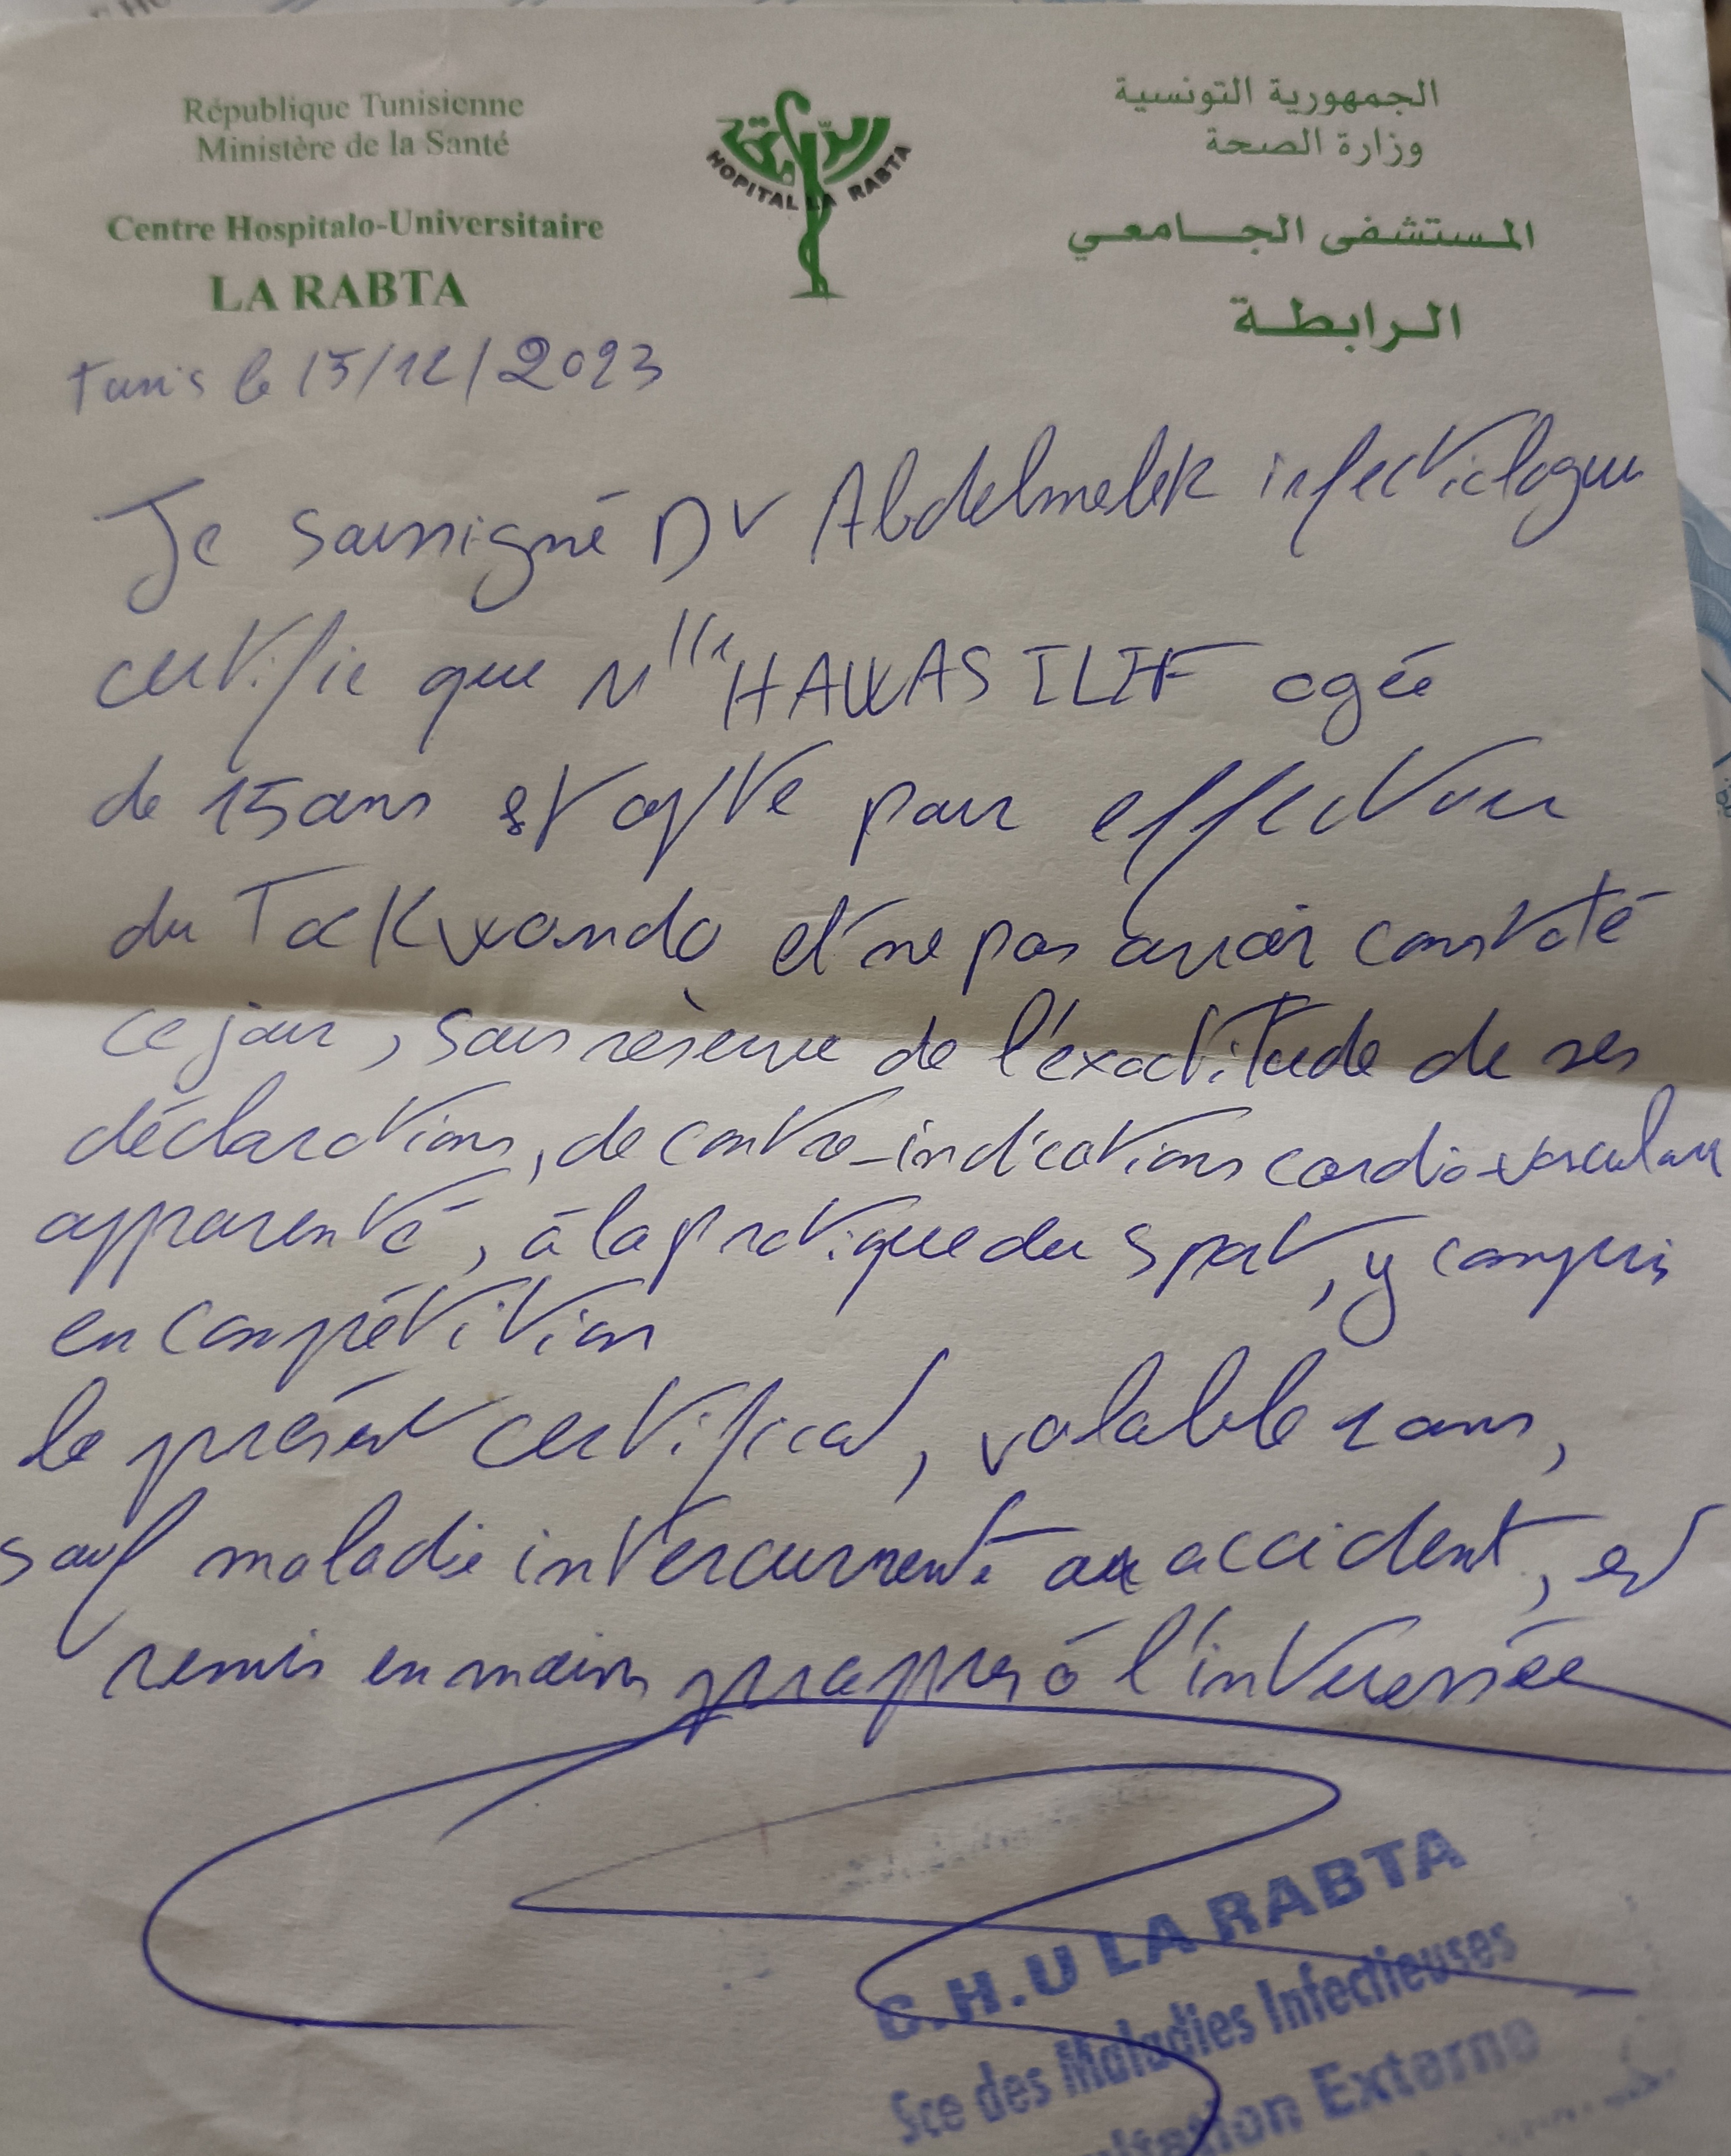 République Tunisienne
Ministère de la Santé
Centre Hospitalo-Universitaire
LA RABTA
الرابطة
HOPITAL LA RABTA
الجمهورية التونسية
وزارة الصحة
المستشفى الجامعي
الرابطة
Tunis le 15/12/2023
Je soussigné Dr Abdelmalek infectiologue
certifie que Mlle HAWAS agée
de 15 ans est apte pour effectuer
du Taekwondo et ne pas avoir constaté
ce jour, sous réserve de l'exactitude de ses
déclarations, de contre-indications cardio-vasculaire
apparente, à la pratique du sport, y compris
en compétition
le présent certificat, valable 1 ans,
sauf maladie intercurrente ou accident, est
remis en mains propres à l'intéressée
C.H.U LA RABTA
Sce des Maladies Infectieuses
Externe